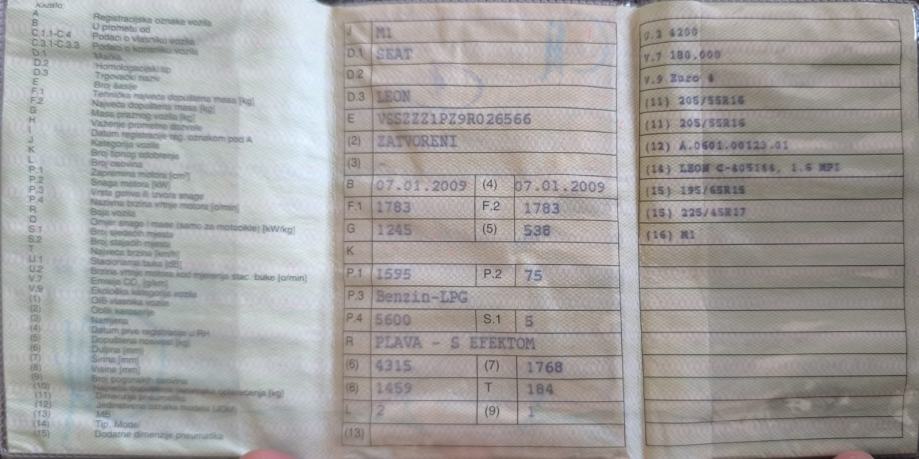 A Registracijska oznaka vozila
B U prometu od
C.1.1-C.4 Podaci o vlasniku vozila
C.3.1-C.3.3 Podaci o korisniku vozila
D.1 Marka
D.2 Homologacijski tip
D.3 Trgovački naziv
E Broj šasije
F.1 Tehnička najveća dopuštena masa [kg]
F.2 Najveća dopuštena masa [kg]
G Masa praznog vozila [kg]
H Važenje prometne dozvole
I Datum registracije reg. oznakom pod A
J Kategorija vozila
K Broj tipnog odobrenja
L Broj osovina
P.1 Zapremina motora [cm³]
P.2 Snaga motora [kW]
P.3 Vrsta goriva ili izvora snage
P.4 Nazivna brzina vrtnje motora [o/min]
R Boja vozila
Omjer snage i mase (samo za motocikle) [kW/kg]
S.1 Broj sjedećih mjesta
S.2 Broj stajaćih mjesta
T Najveća brzina [km/h]
U.1 Stacionarna buka [dB]
U.2 Brzina vrtnje motora kod mjerenja stac. buke [o/min]
V.7 Emisije CO₂ [g/km]
V.9 Ekološka kategorija vozila
(1) OIB vlasnika vozila
(2) Oblik karoserije
(3) Namjena
(4) Datum prve registracije u RH
(5) Dopuštena nosivost [kg]
(6) Duljina [mm]
(7) Širina [mm]
(8) Visina [mm]
(9) Broj pogonskih osovina
(10)
(11) Dimenzije pneumatika
(12)
(13) MB
(14) Tip, Model
(15) Dodatne dimenzije pneumatika
J M1
D.1 SEAT
D.2
D.3 LEON
E VSSZZZ1PZ9R026566
(2) ZATVORENI
(3) -
B 07.01.2009 (4) 07.01.2009
F.1 1783 F.2 1783
G 1245 (5) 538
K
P.1 1595 P.2 75
P.3 Benzin-LPG
P.4 5600 S.1 5
R PLAVA - S EFEKTOM
(6) 4315 (7) 1768
(8) 1459 T 184
L 2 (9) 1
(13)
U.2 4200
V.7 180,000
V.9 Euro 4
(11) 205/55R16
(11) 205/55R16
(12) A.0601.00123.01
(14) LEON 1.6 MPI
(15) 195/65R15
(15) 225/45R17
(16) M1